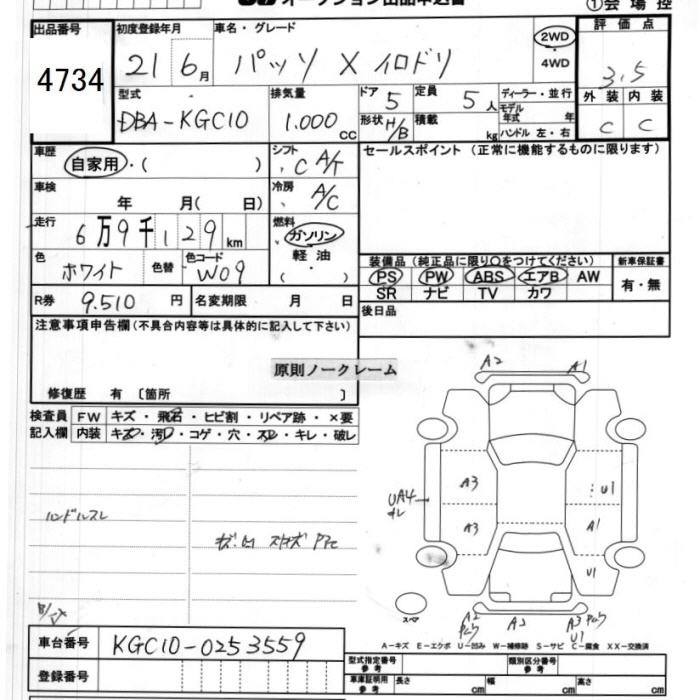 オークション出品申込書 ①会場控
出品番号 初度登録年月 車名・グレード 評価点
4734 21 6月 パッソ X イロドリ 2WD 4WD 3.5
型式 排気量 ドア 定員 ディーラー・並行 外装 内装
DBA-KGC10 1.000cc 5 5人 モデル年式 年 C C
形状 H/B 積載 kg ハンドル 左・右
車歴 自家用・( ) シフト C A/T セールスポイント (正常に機能するものに限ります)
車検 年 月( 日) 冷房 A/C
走行 6万9千129km 燃料 ガソリン 軽油 ( )
色 ホワイト 色替 色コード W09
装備品(純正品に限り○をつけてください) 新車保証書
PS PW ABS エアB AW 有・無
SR ナビ TV カワ
R券 9.510円 名変期限 月 日 後日品
注意事項申告欄(不具合内容等は具体的に記入して下さい)
原則ノークレーム
修復歴 有 〔箇所 〕
検査員記入欄 FW キズ・飛石・ヒビ割・リペア跡・×要
内装 キズ・汚レ・コゲ・穴・スレ・キレ・破レ
ハンドルスレ
A2 A1
A3 U1
UA4
A3 A1
U1
スペア
A2 A2 A3
U1
車台番号 KGC10-0253559
登録番号
A-キズ E-エクボ U-凹み W-補修跡 S-サビ C-腐食 XX-交換済
型式指定番号 参考 類別区分番号 参考
車庫証明用 参考 長さ cm 幅 cm 高さ cm